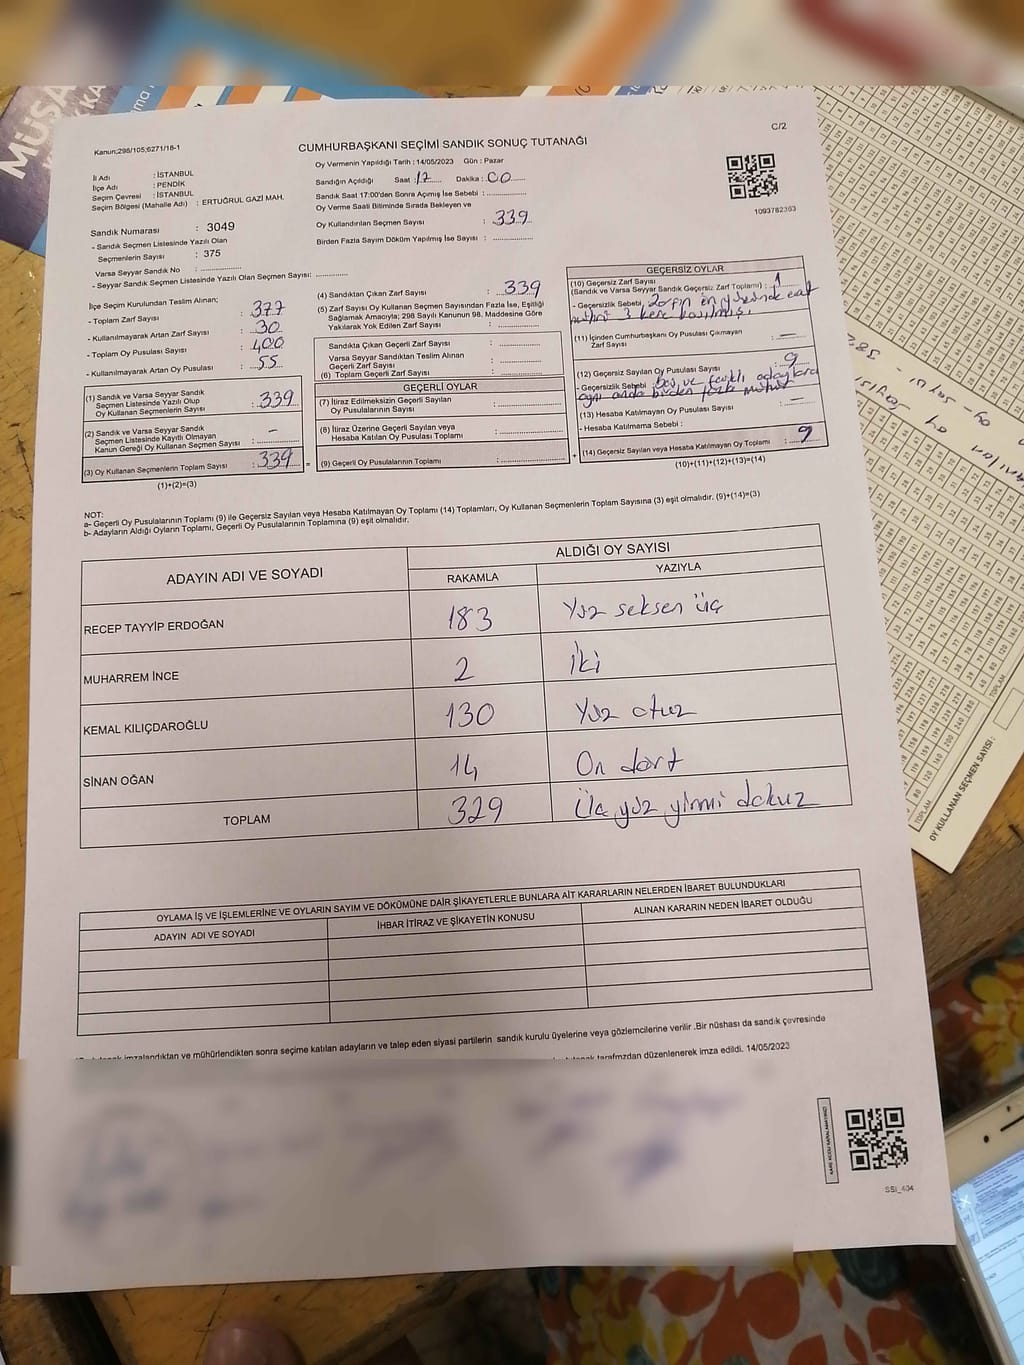 MÜSA
KKA
C/2
Kanun;298/105;6271/18-1
CUMHURBAŞKANI SEÇİMİ SANDIK SONUÇ TUTANAĞI
İl Adı : İSTANBUL
İlçe Adı : PENDİK
Seçim Çevresi : İSTANBUL
Seçim Bölgesi (Mahalle Adı) : ERTUĞRUL GAZİ MAH.
Oy Vermenin Yapıldığı Tarih : 14/05/2023 Gün : Pazar
Sandığın Açıldığı Saat : 17 Dakika : 00
Sandık Saat 17:00'den Sonra Açımış İse Sebebi :
Oy Verme Saati Bitiminde Sırada Bekleyen ve
Oy Kullandırılan Seçmen Sayısı : 339
Birden Fazla Sayım Döküm Yapılmış İse Sayısı :
1093782363
Sandık Numarası : 3049
- Sandık Seçmen Listesinde Yazılı Olan
Seçmenlerin Sayısı : 375
Varsa Seyyar Sandık No :
- Seyyar Sandık Seçmen Listesinde Yazılı Olan Seçmen Sayısı:
İlçe Seçim Kurulundan Teslim Alınan;
- Toplam Zarf Sayısı : 377
- Kullanılmayarak Artan Zarf Sayısı : 30
- Toplam Oy Pusulası Sayısı : 400
- Kullanılmayarak Artan Oy Pusulası : 55
(1) Sandık ve Varsa Seyyar Sandık
Seçmen Listesinde Yazılı Olup
Oy Kullanan Seçmenlerin Sayısı : 339
(2) Sandık ve Varsa Seyyar Sandık
Seçmen Listesinde Kayıtlı Olmayan
Kanun Gereği Oy Kullanan Seçmen Sayısı : -
(3) Oy Kullanan Seçmenlerin Toplam Sayısı : 339 =
(1)+(2)=(3)
(4) Sandıktan Çıkan Zarf Sayısı : 339
(5) Zarf Sayısı Oy Kullanan Seçmen Sayısından Fazla İse, Eşitliği
Sağlamak Amacıyla; 298 Sayılı Kanunun 98. Maddesine Göre
Yakılarak Yok Edilen Zarf Sayısı :
Sandıkta Çıkan Geçerli Zarf Sayısı :
Varsa Seyyar Sandıktan Teslim Alınan
Geçerli Zarf Sayısı :
(6) Toplam Geçerli Zarf Sayısı :
GEÇERLİ OYLAR
(7) İtiraz Edilmeksizin Geçerli Sayılan
Oy Pusulalarının Sayısı :
(8) İtiraz Üzerine Geçerli Sayılan veya
Hesaba Katılan Oy Pusulası Toplamı :
(9) Geçerli Oy Pusulalarının Toplamı : +
GEÇERSİZ OYLAR
(10) Geçersiz Zarf Sayısı
(Sandık ve Varsa Seyyar Sandık Geçersiz Zarf Toplamı) : 1
- Geçersizlik Sebebi : Zarfın ön yüzünde evet
mührü 3 kere basılmış.
(11) İçinden Cumhurbaşkanı Oy Pusulası Çıkmayan
Zarf Sayısı : —
(12) Geçersiz Sayılan Oy Pusulası Sayısı : 9
- Geçersizlik Sebebi : boş ve farklı adaylara
aynı anda birden fazla mühür
(13) Hesaba Katılmayan Oy Pusulası Sayısı : —
- Hesaba Katılmama Sebebi :
(14) Geçersiz Sayılan veya Hesaba Katılmayan Oy Toplamı : 9
(10)+(11)+(12)+(13)=(14)
NOT:
a- Geçerli Oy Pusulalarının Toplamı (9) ile Geçersiz Sayılan veya Hesaba Katılmayan Oy Toplamı (14) Toplamları, Oy Kullanan Seçmenlerin Toplam Sayısına (3) eşit olmalıdır. (9)+(14)=(3)
b- Adayların Aldığı Oyların Toplamı, Geçerli Oy Pusulalarının Toplamına (9) eşit olmalıdır.
ADAYIN ADI VE SOYADI ALDIĞI OY SAYISI
RAKAMLA YAZIYLA
RECEP TAYYİP ERDOĞAN 183 Yüz seksen üç
MUHARREM İNCE 2 iki
KEMAL KILIÇDAROĞLU 130 Yüz otuz
SİNAN OĞAN 14 On dört
TOPLAM 329 Üç yüz yirmi dokuz
OYLAMA İŞ VE İŞLEMLERİNE VE OYLARIN SAYIM VE DÖKÜMÜNE DAİR ŞİKAYETLERLE BUNLARA AİT KARARLARIN NELERDEN İBARET BULUNDUKLARI
ADAYIN ADI VE SOYADI İHBAR İTİRAZ VE ŞİKAYETİN KONUSU ALINAN KARARIN NEDEN İBARET OLDUĞU
imzalandıktan ve mühürlendikten sonra seçime katılan adayların ve talep eden siyasi partilerin sandık kurulu üyelerine veya gözlemcilerine verilir .Bir nüshası da sandık çevresinde
tarafımzdan düzenlenerek imza edildi. 14/05/2023
SSİ_404
TOPLAM
OY KULLANAN SEÇMEN SAYISI :